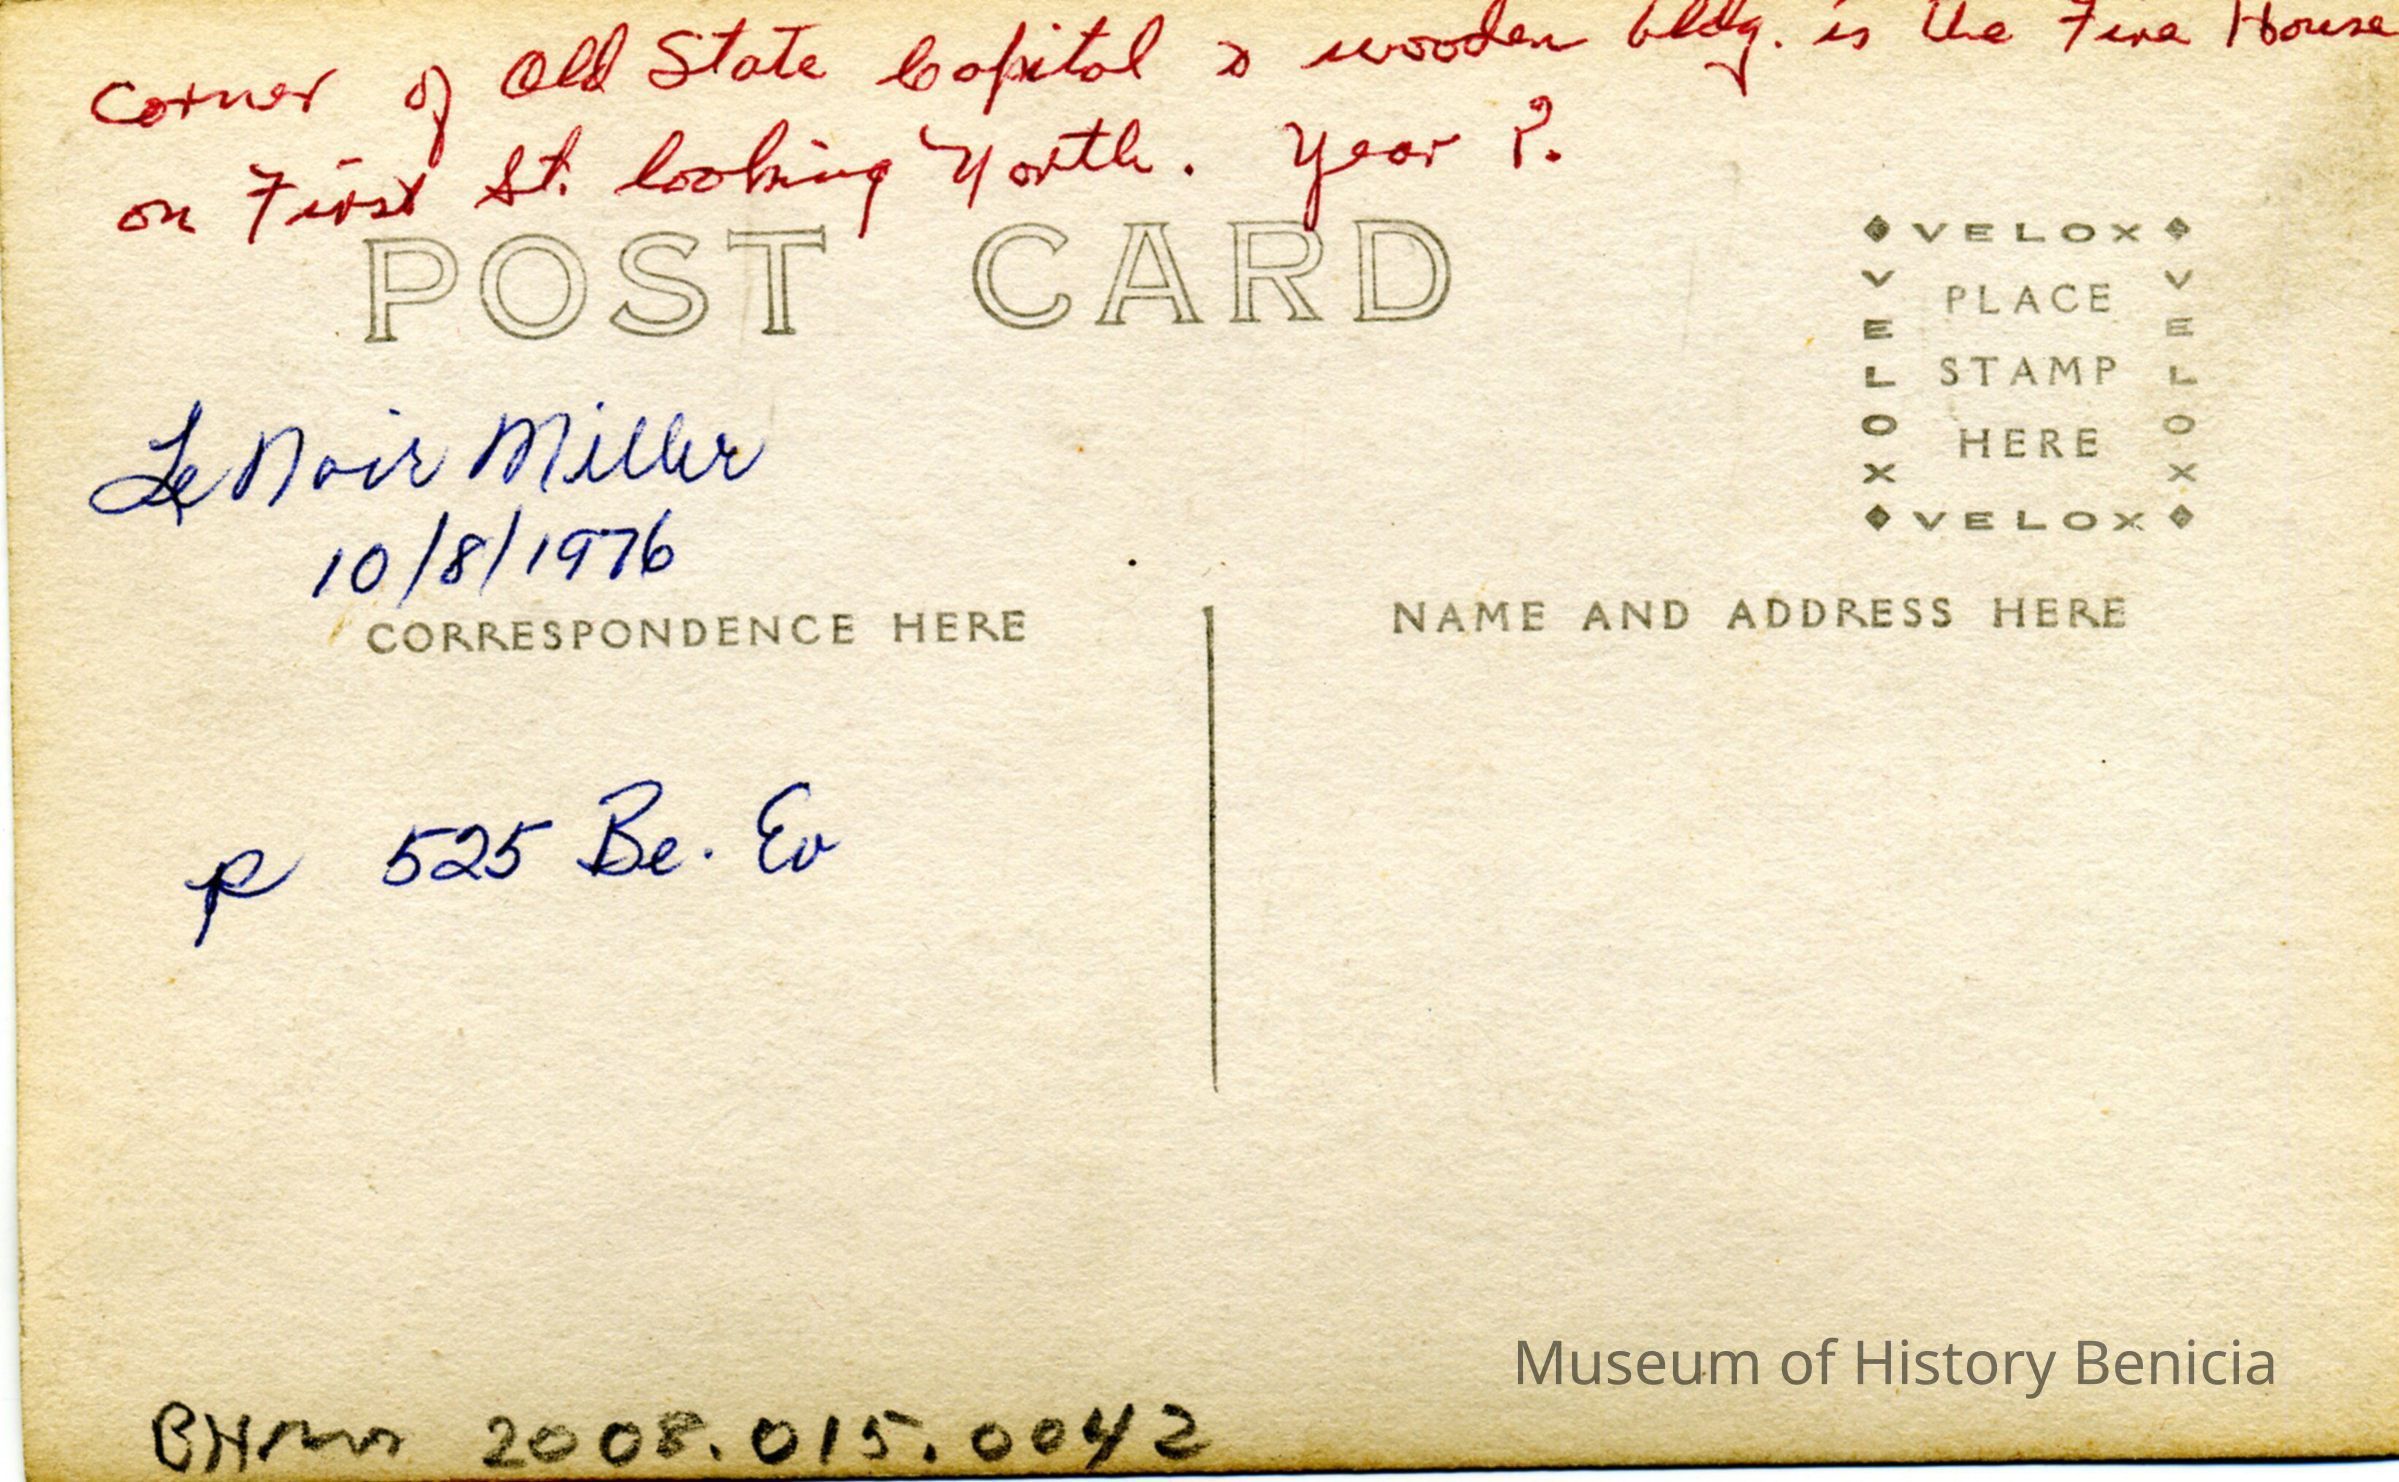 Corner of Old State Capital & wooden bldg. is the Fire House
on First St. looking North. Year ?.
POST CARD
VELOX
VELOX
VELOX
PLACE
STAMP
HERE
VELOX
LeNoir Miller
10/8/1976
CORRESPONDENCE HERE
NAME AND ADDRESS HERE
p 525 Be. Ev
Museum of History Benicia
2008.015.0042